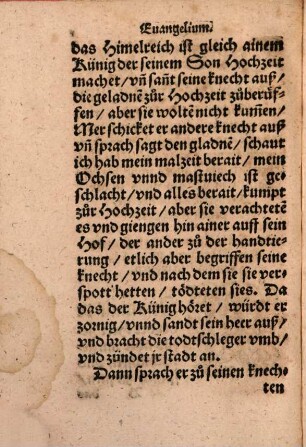 Euangelium.
das Himelreich ist gleich ainem
Künig der seinem Son Hochzeit
machet / vñ sañt seine knecht auß /
die geladnẽ zůr Hochzeit zůberüf-
fen / aber sie woltẽ nicht kum̃en /
Mer schicket er andere knecht auß
vñ sprach sagt den gladnẽ / schaut
ich hab mein malzeit berait / mein
Ochsen vnnd mastuiech ist ge-
schlacht / vnd alles berait / kumpt
zůr Hochzeit / aber sie verachtetẽ
es vnd giengen hin ainer auff sein
Hof / der ander zů der handtie-
rung / etlich aber begriffen seine
knecht / vnd nach dem sie sie ver-
spott hetten / tödteten sies. Da
das der Künig höret / würdt er
zornig / vnnd sandt sein heer auß /
vnd bracht die todtschleger vmb /
vnd zündet jr stadt an.
Dann sprach er zů seinen knech-
ten